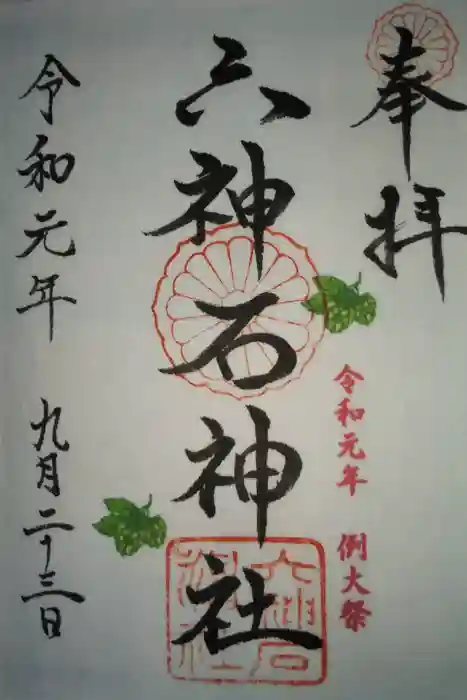 奉拝
令和元年 例大祭
六神石神社
六神石神社
令和元年 九月二十三日